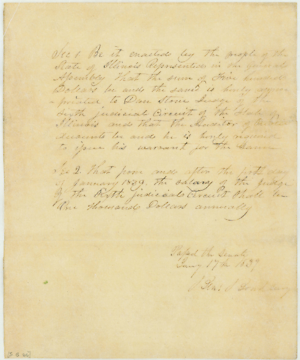 Sec 1 Be it enacted by the people of the
State of Illinois Represented in the General
Assembly That the sum of Five hundred
Dollars be and the same is hereby appro
priated to Dan Stone Judge of the
Sixth judicial Circuit of the State of
Illinois and that the Auditor of public
accounts be and he is hereby
to his warrant for the Same
Sec 2 That from and after the first day
of January 1839, the salary of the Judge
of the Sixth judicial Circuit shall be
One thousand Dollars annually
Passed the Senate
17th 1839